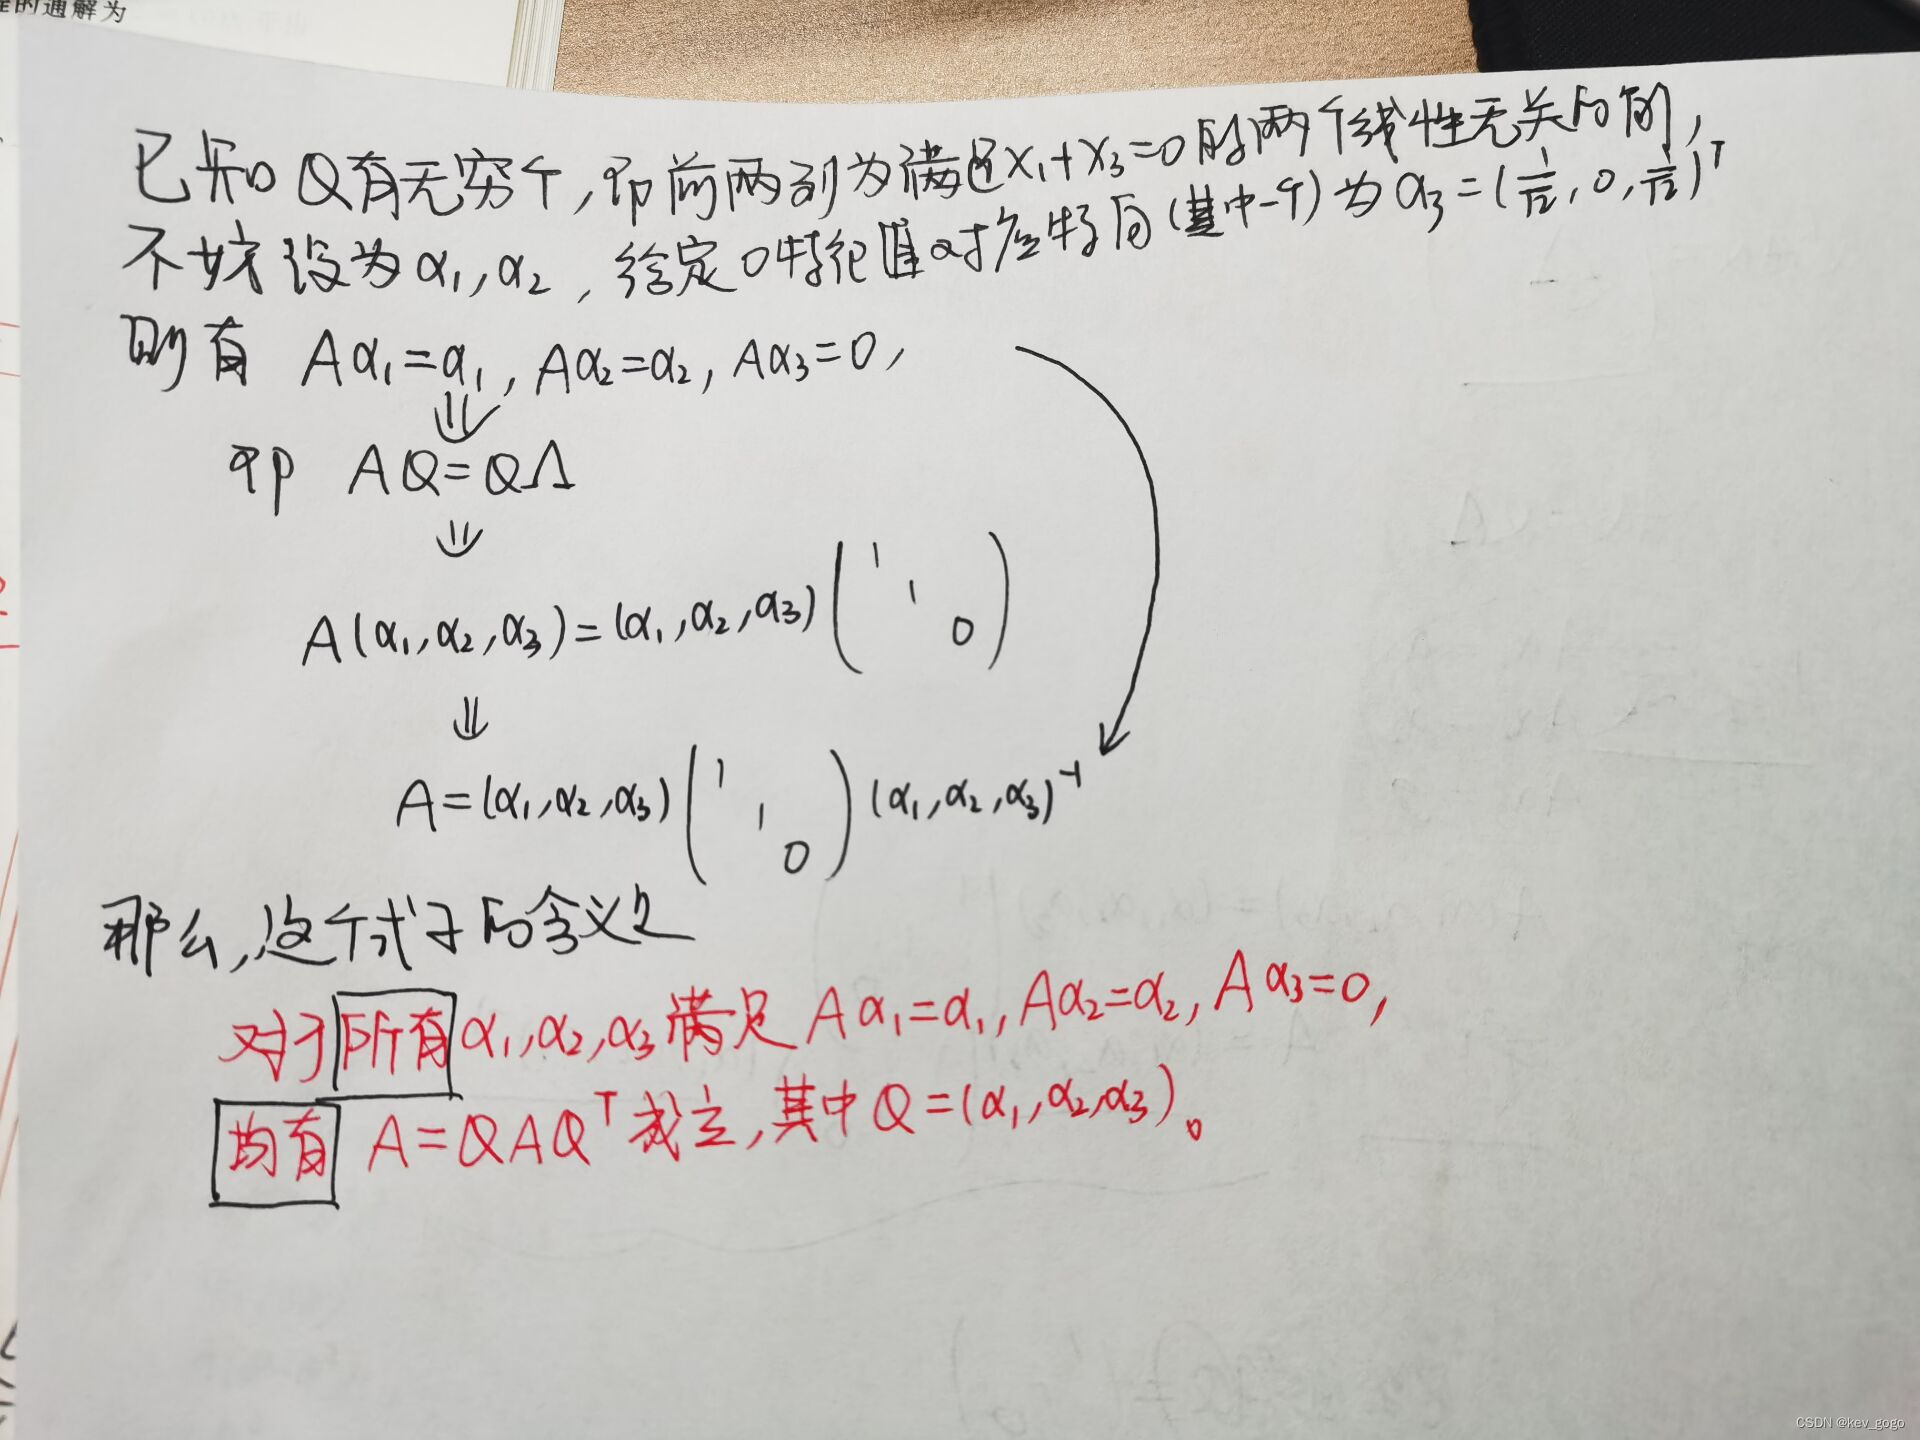 的通解为
已知Q有无穷个,即前两列为满足x₁+x₃=0的两个线性无关的向,
不妨设为α₁,α₂,给定0特征值对应特向(其中一个)为α₃=(1/√2,0,1/√2)ᵀ
则有 Aα₁=α₁,Aα₂=α₂,Aα₃=0,
⇓
即 AQ=QΛ
⇓
A(α₁,α₂,α₃)=(α₁,α₂,α₃)(1 1 0)
⇓
A=(α₁,α₂,α₃)(1 1 0)(α₁,α₂,α₃)⁻¹
那么,这个式子的含义是
对于所有α₁,α₂,α₃满足Aα₁=α₁,Aα₂=α₂,Aα₃=0,
均有 A=QΛQᵀ成立,其中Q=(α₁,α₂,α₃)。
CSDN @kev_gogo